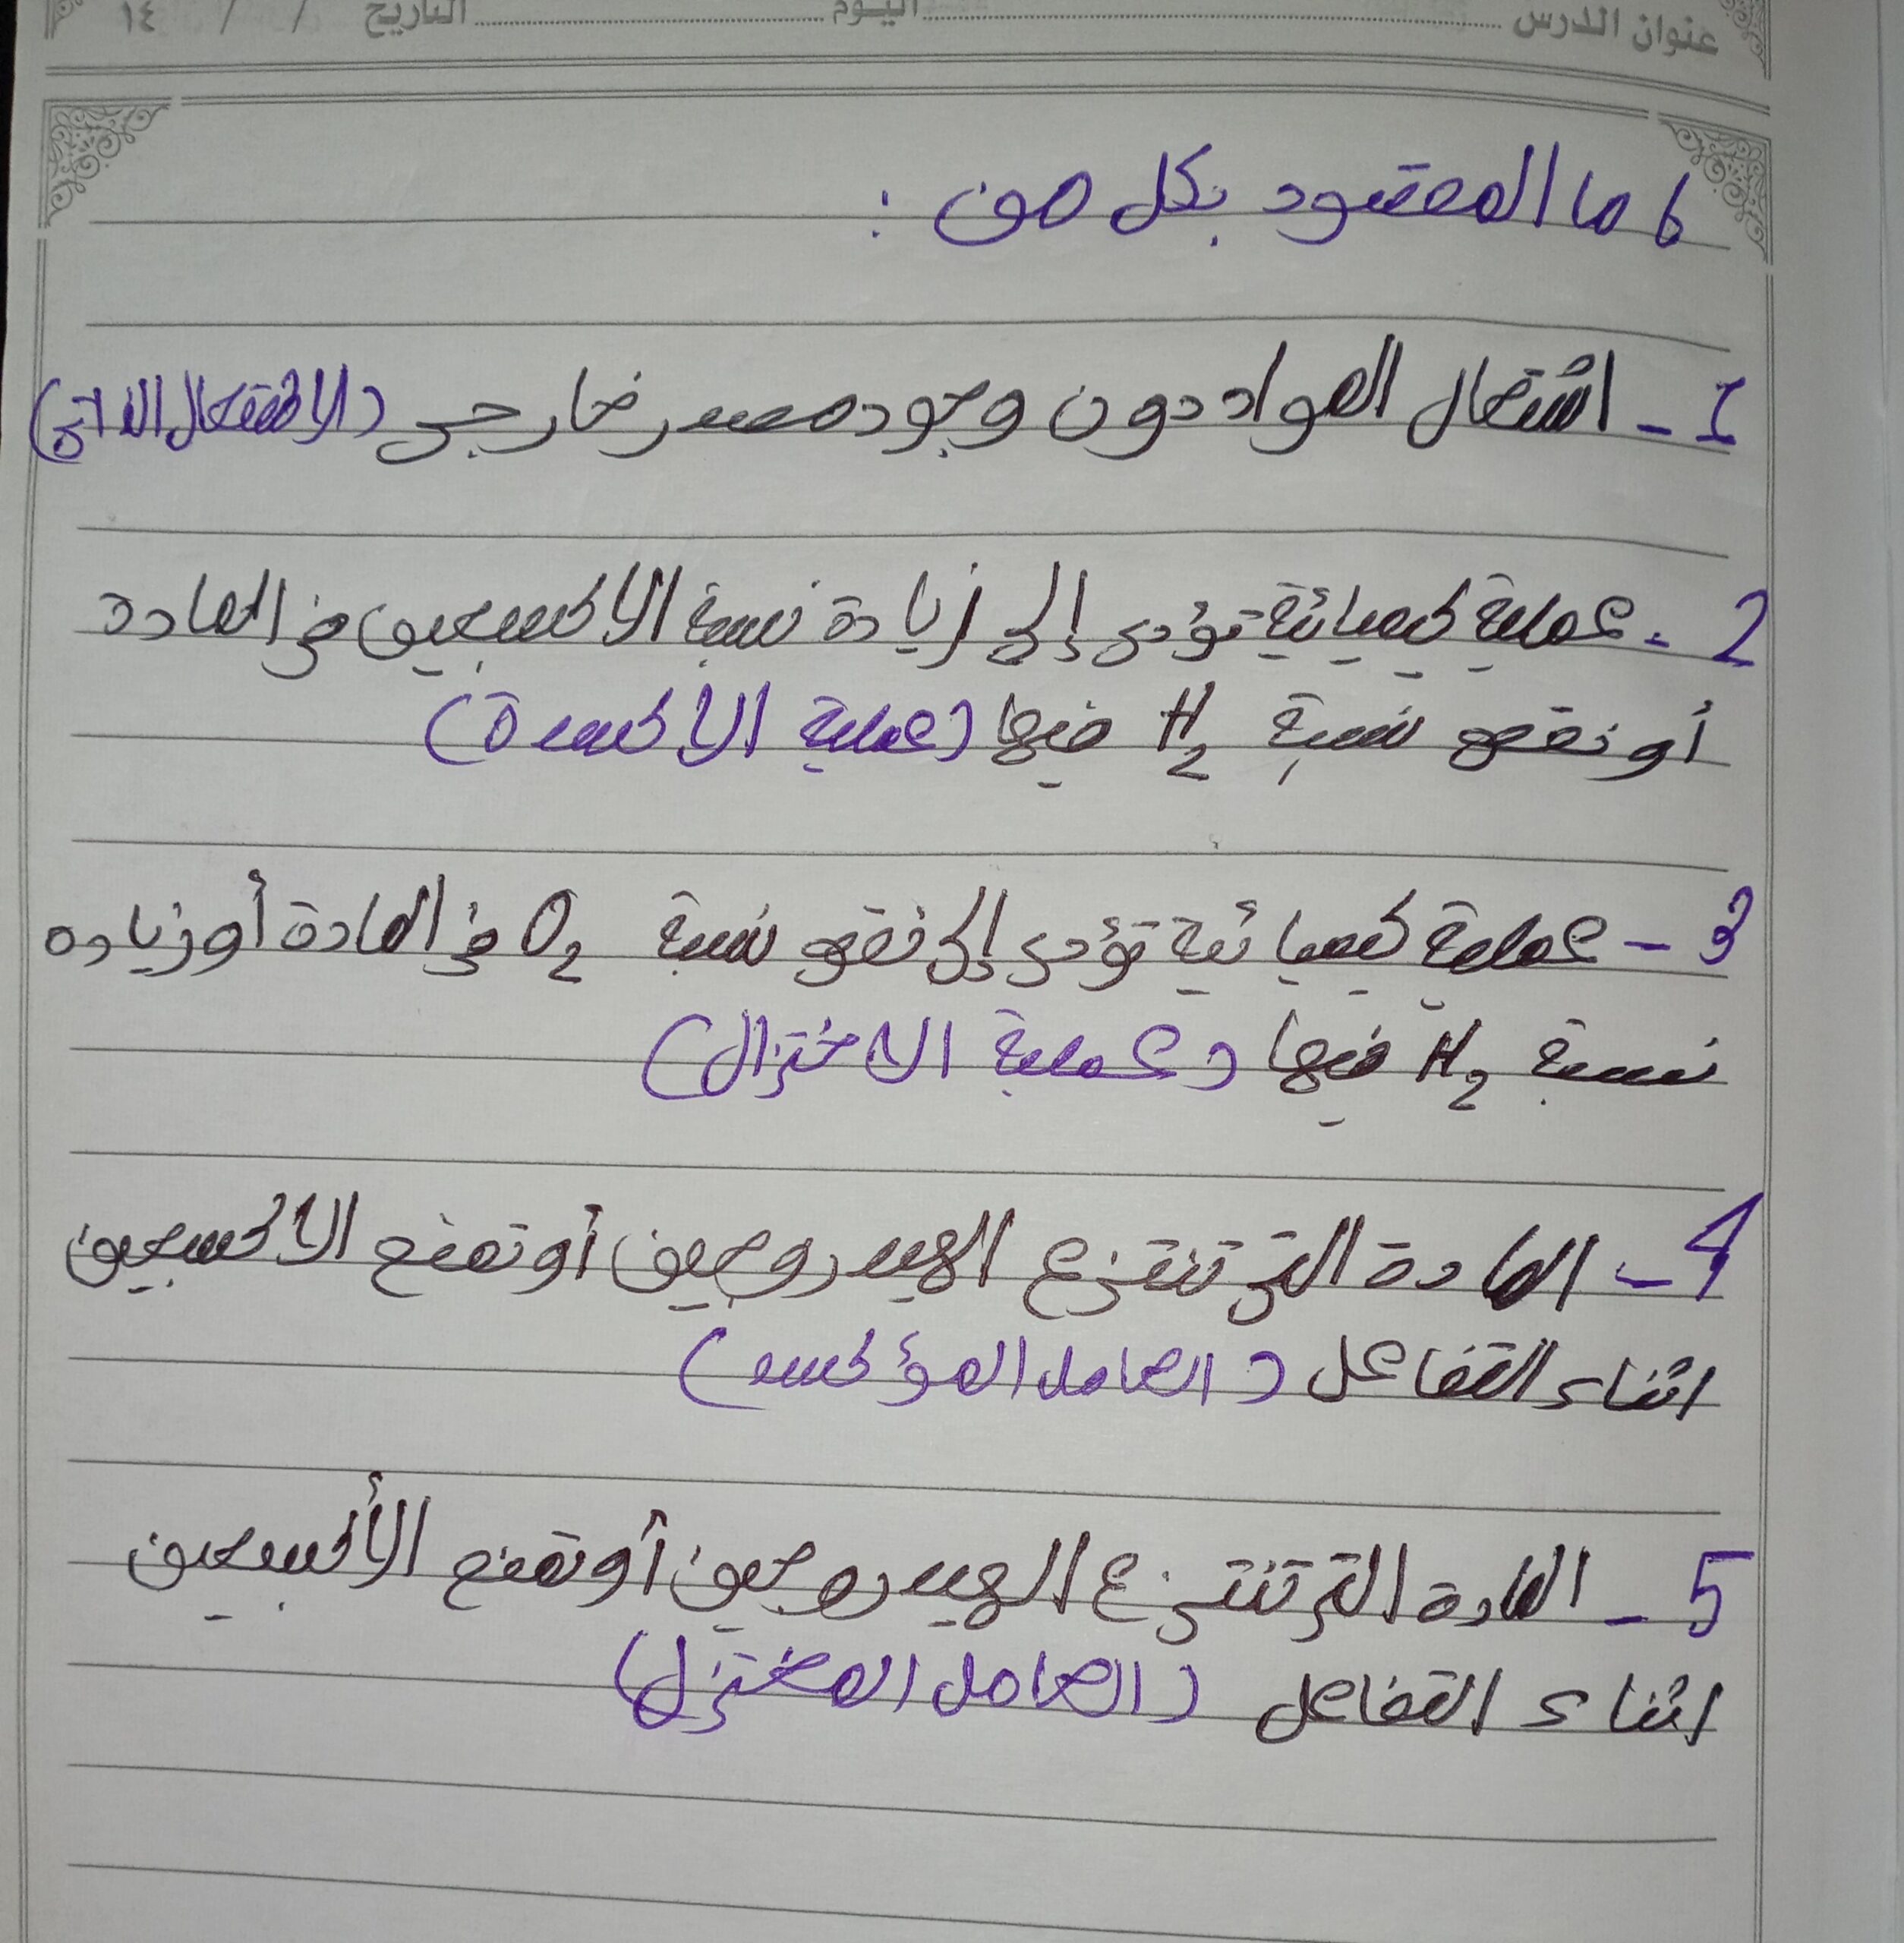 عنوان الدرس ........ اليوم ........ التاريخ / / ١٤
ما المقصود بكل من :
1 - اشتعال المواد دون وجود مصدر خارجي (الاشتعال الذاتي)
2 - عملية كيميائية تؤدى إلى زيادة نسبة الاكسجين في المادة
أو نقص نسبة H₂ فيها (عملية الاكسدة)
3 - عملية كيميائية تؤدى إلى نقص نسبة O₂ في المادة أو زياده
نسبة H₂ فيها (عملية الاختزال)
4 - المادة التي تنتزع الهيدروجين أو تمنح الاكسجين
اثناء التفاعل (العامل المؤكسد)
5 - المادة التي تنتزع الهيدروجين أو تمنح الأكسجين
اثناء التفاعل (العامل المختزل)